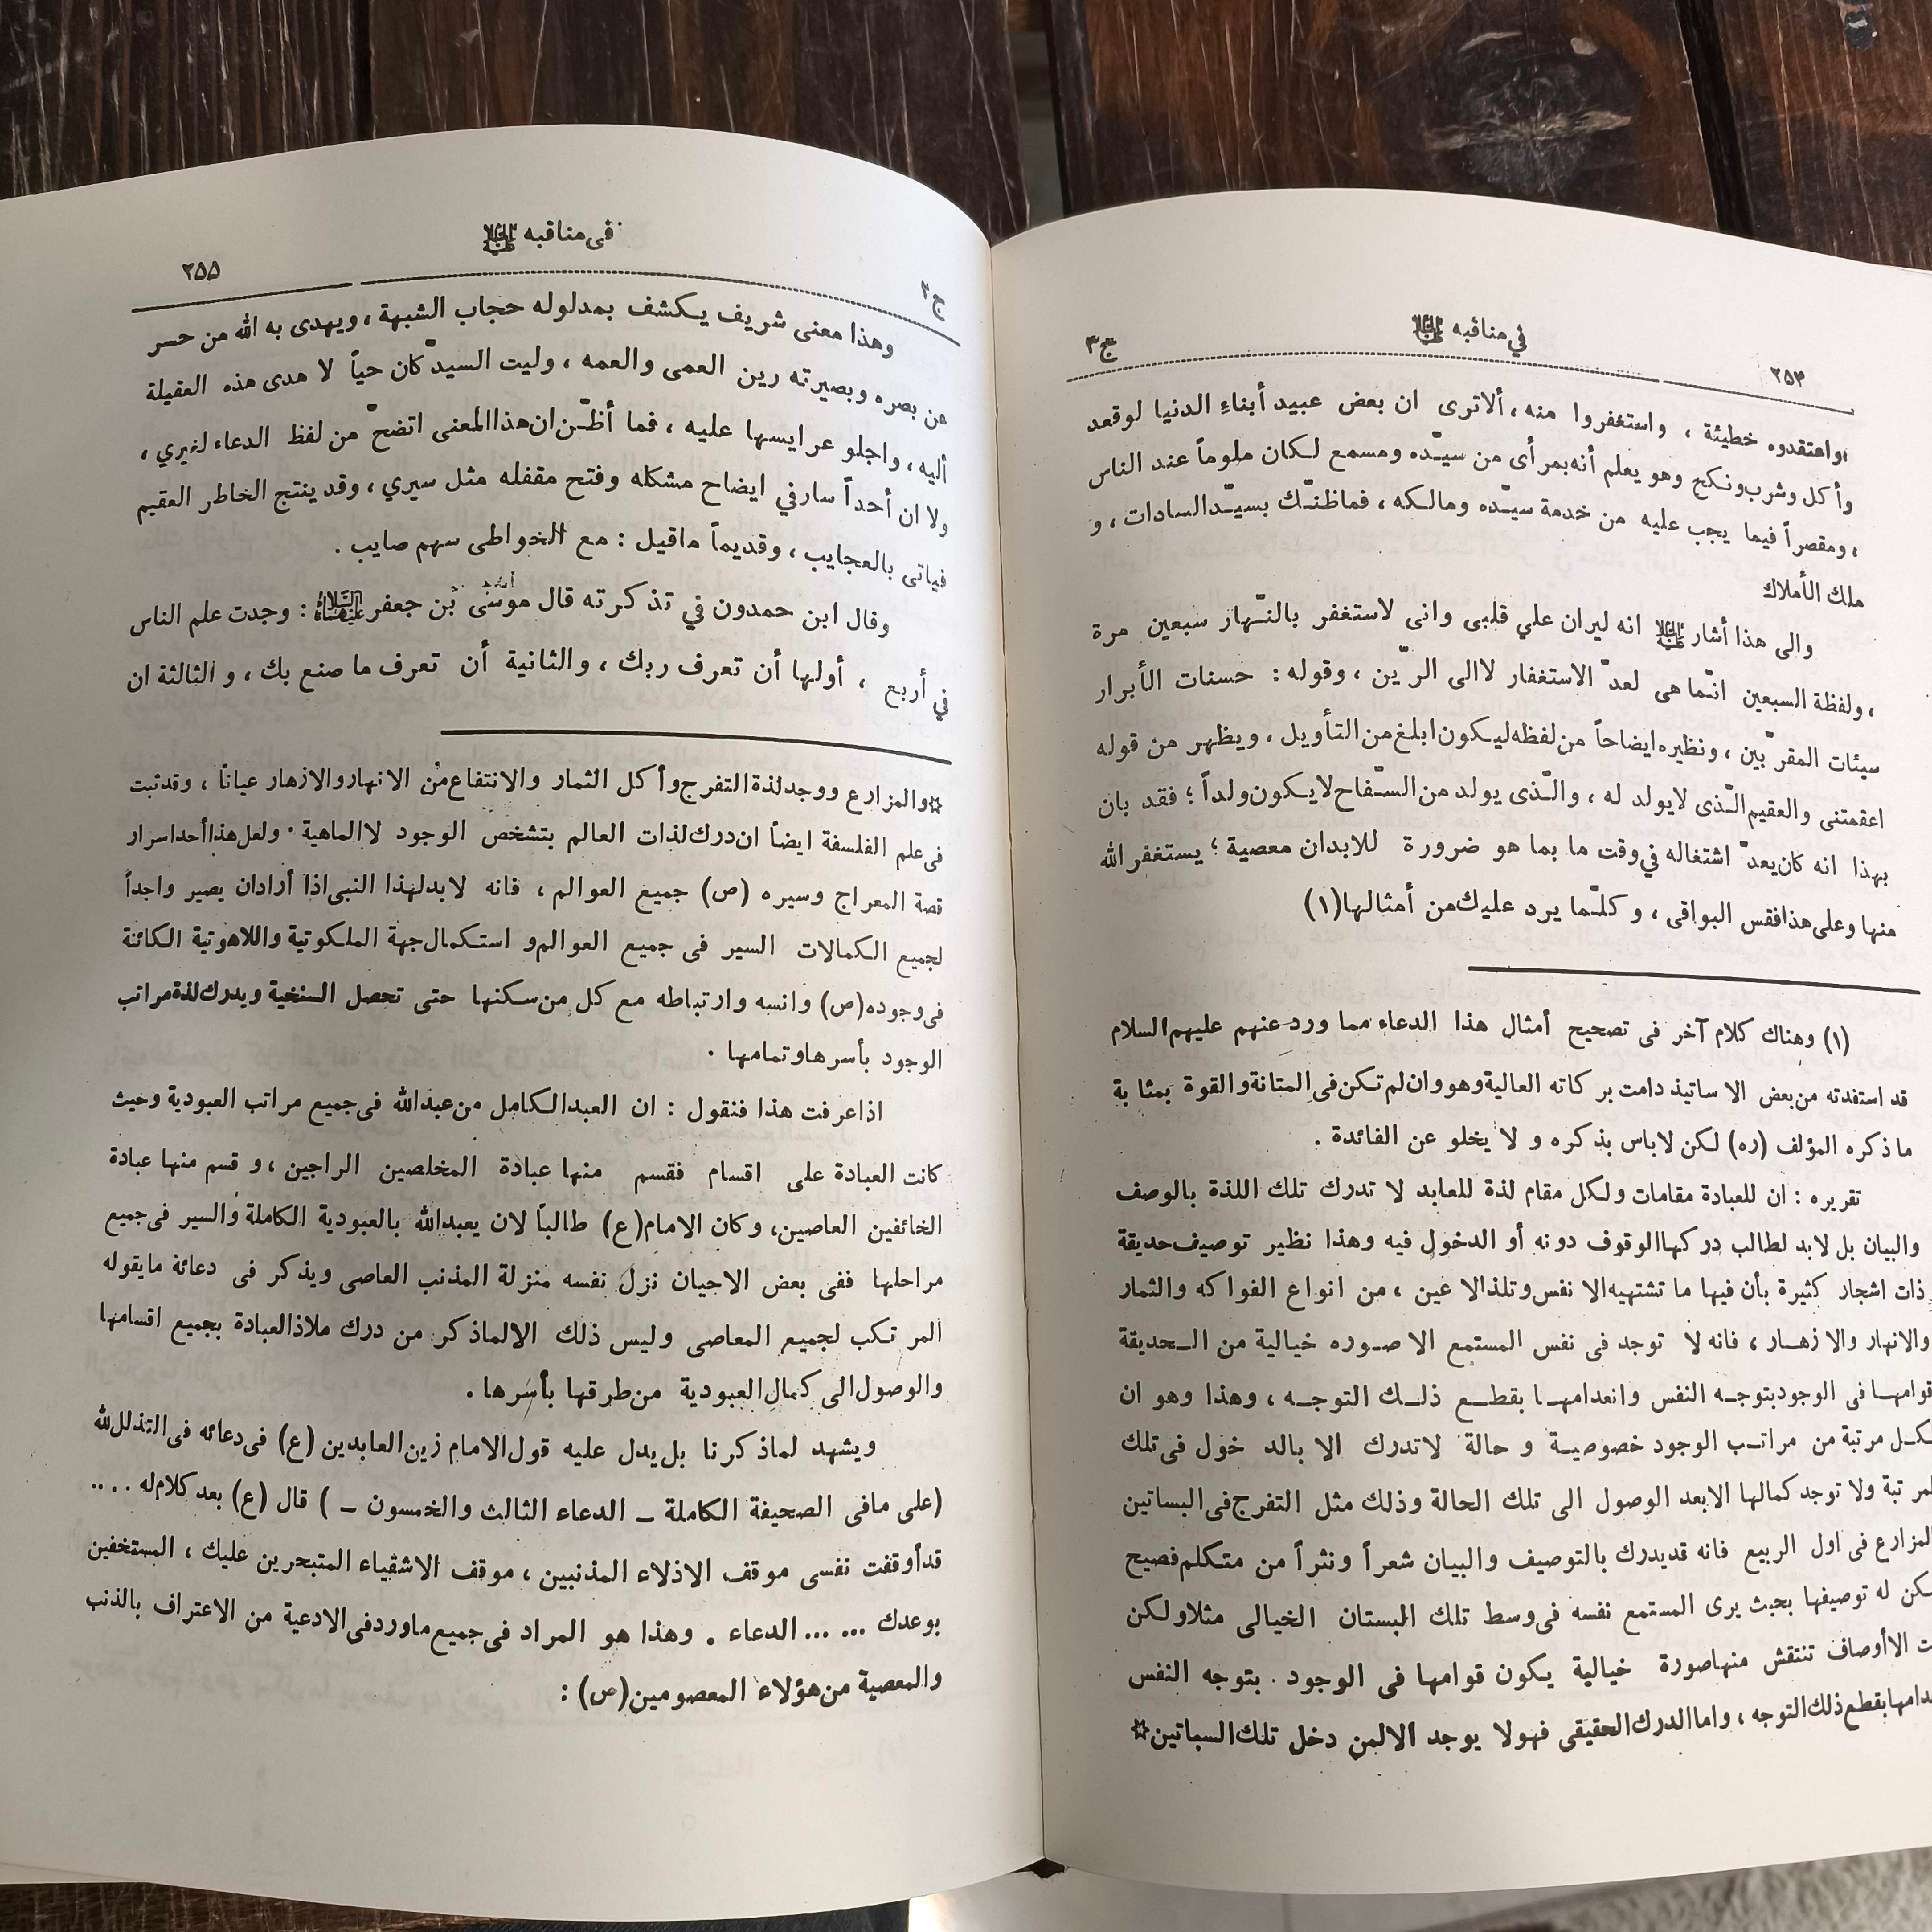 في مناقبه عليه السلام
ج٣
٢٥٤
واعتقدوه خطيئة ، واستغفروا منه ، ألاترى ان بعض عبيد أبناء الدنيا لوقعد
وأكل وشرب ونكح وهو يعلم أنه بمرأى من سيّده ومسمع لكان ملوماً عند الناس
، ومقصراً فيما يجب عليه من خدمة سيّده ومالكه ، فماظنّك بسيّدالسادات ، و
ملك الأملاك
والى هذا أشار عليه السلام انه ليران علي قلبى وانى لاستغفر بالنّهار سبعين مرة
، ولفظة السبعين انّماهى لعدّ الاستغفار لاالى الرّين ، وقوله : حسنات الأبرار
سيئات المقرّبين ، ونظيره ايضاحاً من لفظه ليكون ابلغ من التأويل ، ويظهر من قوله
اعقمتنى والعقيم الّذى لايولد له ، والّذى يولد من السّفاح لايكون ولداً ؛ فقد بان
بهذا انه كان يعدّ اشتغاله في وقت ما بما هو ضرورة للابدان معصية ؛ يستغفر الله
منها وعلى هذا فقس البواقى ، وكلّما يرد عليك من أمثالها (١)
(١) وهناك كلام آخر فى تصحيح أمثال هذا الدعاء مما ورد عنهم عليهم السلام
قد استفدته من بعض الاساتيذ دامت بركاته العالية وهو وان لم تكن فى المتانة والقوة بمثابة
ماذكره المؤلف (ره) لكن لاباس بذكره و لا يخلو عن الفائدة .
تقريره : ان للعبادة مقامات ولكل مقام لذة للعابد لا تدرك تلك اللذة بالوصف
والبيان بل لابد لطالب دركها الوقوف دونه أو الدخول فيه وهذا نظير توصيف حديقة
ذات اشجار كثيرة بأن فيها ما تشتهيه الا نفس وتلذ الا عين ، من انواع الفواكه والثمار
والانهار والازهار ، فانه لا توجد فى نفس المستمع الا صوره خيالية من الحديقة
قوامها فى الوجود بتوجه النفس وانعدامها بقطع ذلك التوجه ، وهذا وهو ان
لكل مرتبة من مراتب الوجود خصوصية و حالة لاتدرك الا بالدخول فى تلك
المرتبة ولا توجد كمالها الابعد الوصول الى تلك الحالة وذلك مثل التفرج فى البساتين
المزارع فى اول الربيع فانه قديدرك بالتوصيف والبيان شعراً ونثراً من متكلم فصيح
له توصيفها بحيث يرى المستمع نفسه فى وسط تلك البستان الخيالى مثلا ولكن
الاأوصاف تنتقش منها صورة خيالية يكون قوامها فى الوجود . بتوجه النفس
بقطع ذلك التوجه ، واما الدرك الحقيقى فهولا يوجد الالمن دخل تلك السباتين☆
في مناقبه عليه السلام
٢٥٥
وهذا معنى شريف يكشف بمدلوله حجاب الشبهة ، ويهدى به الله من حسر
عن بصره وبصيرته رين العمى والعمه ، وليت السيدّ كان حياً لا هدى هذه العقيلة
أليه ، واجلو عرايسها عليه ، فما أظّن ان هذا المعنى اتضحّ من لفظ الدعاء لغيري ،
ولا ان أحداً سار في ايضاح مشكله وفتح مقفله مثل سيري ، وقد ينتج الخاطر العقيم
فياتى بالعجايب ، وقديماً ماقيل : مع الخواطى سهم صايب .
وقال ابن حمدون في تذكرته قال موسى بن جعفر عليهما السلام : وجدت علم الناس
في أربع ، أولها أن تعرف ربك ، والثانية أن تعرف ما صنع بك ، و الثالثة ان
☆والمزارع ووجد لذة التفرج وأكل الثمار والانتفاع من الانهار والازهار عياناً ، وقد ثبت
فى علم الفلسفة ايضاً ان درك لذات العالم بتشخص الوجود لاالماهية . ولعل هذا أحد اسرار
قصة المعراج وسيره (ص) جميع العوالم ، فانه لابد لهذا النبى اذا أرادان يصير واجداً
لجميع الكمالات السير فى جميع العوالم و استكمال جهة الملكوتية واللاهوتية الكائنة
فى وجوده (ص) وانسه وارتباطه مع كل من سكنها حتى تحصل السنخية ويدرك لذة مراتب
الوجود بأسرها وتمامها .
اذا عرفت هذا فنقول : ان العبد الكامل من عبد الله فى جميع مراتب العبودية وحيث
كانت العبادة على اقسام فقسم منها عبادة المخلصين الراجين ، و قسم منها عبادة
الخائفين العاصين، وكان الامام (ع) طالباً لان يعبد الله بالعبودية الكاملة والسير فى جميع
مراحلها ففى بعض الاحيان نزل نفسه منزلة المذنب العاصى ويذكر فى دعائة مايقوله
المرتكب لجميع المعاصى وليس ذلك الالماذكر من درك ملاذ العبادة بجميع اقسامها
والوصول الى كمال العبودية من طرقها بأسرها .
ويشهد لماذكرنا بل يدل عليه قول الامام زين العابدين (ع) فى دعائه فى التذلل لله
(على مافى الصحيفة الكاملة ـ الدعاء الثالث والخمسون ـ ) قال (ع) بعد كلام له ....
قد أوقفت نفسى موقف الاذلاء المذنبين ، موقف الاشقياء المتبحرين عليك ، المستخفين
بوعدك ... ... الدعاء . وهذا هو المراد فى جميع ماورد فى الادعية من الاعتراف بالذنب
والمعصية من هؤلاء المعصومين (ص) :